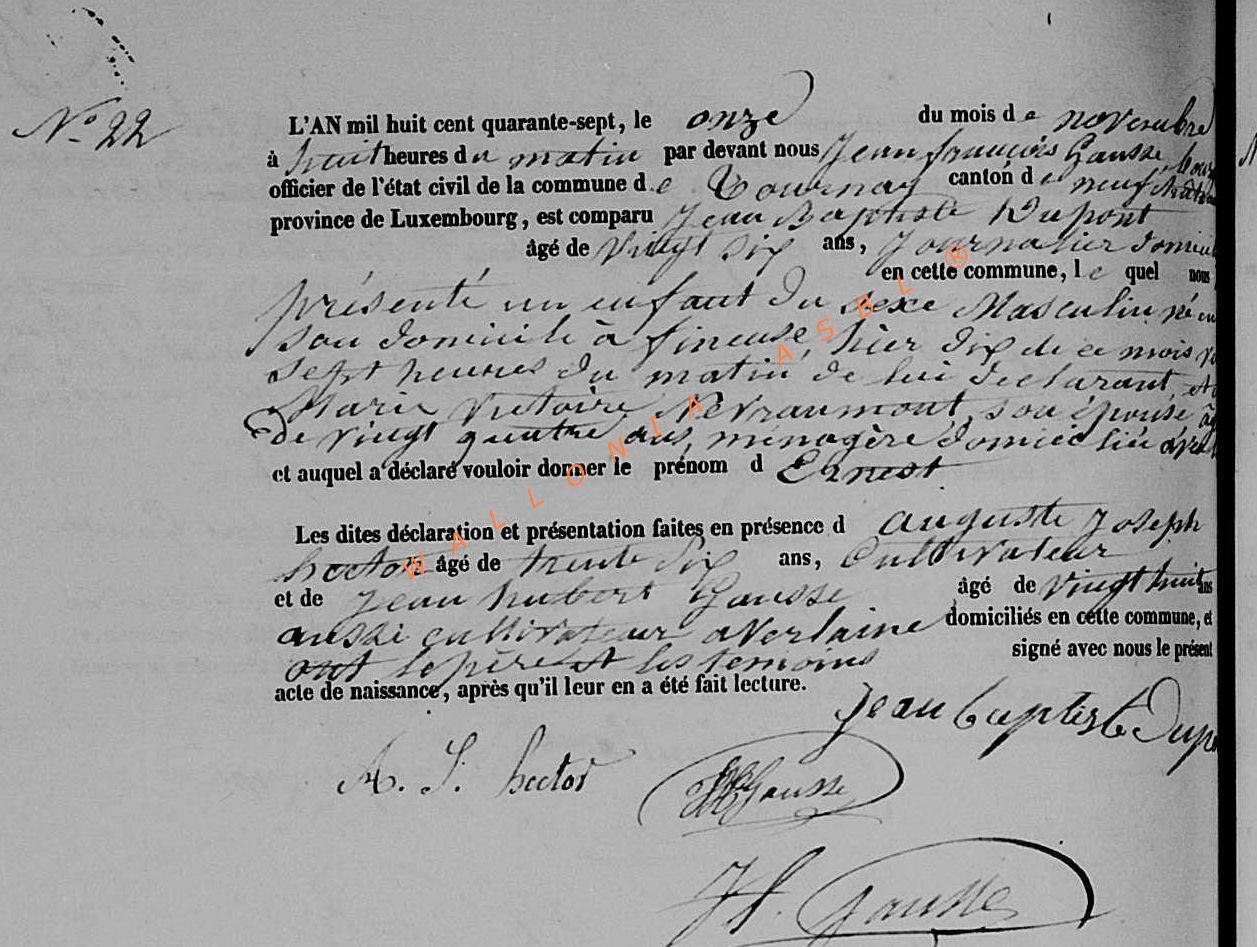 No 22
L'AN mil huit cent quarante-sept, le onze du mois de novembre
à huit heures du matin par devant nous Jean françois Gausse
officier de l'état civil de la commune de Tournay canton de neufchateau
province de Luxembourg, est comparu Jean Baptiste Dupont
âgé de vingt six ans, Journalier
en cette commune, le quel nous
présenté un enfant du sexe Masculin né en
son domicile à fineuse, hier dix de ce mois
sept heures du matin de lui déclarant et
Marie Victoire Nevraumont, son épouse
de vingt quatre ans, ménagère domiciliée
et auquel a déclaré vouloir donner le prénom d Ernest
Les dites déclaration et présentation faites en présence d auguste Joseph
hector âgé de trente six ans, Cultivateur
et de jean hubert Gausse âgé de vingt huit ans
aussi cultivateur a Verlaine domiciliés en cette commune, et
ont le père et les temoins signé avec nous le présent
acte de naissance, après qu'il leur en a été fait lecture.
jean baptiste
A. J. hector
Gausse
Gausse
WALLONIA ASBL ®